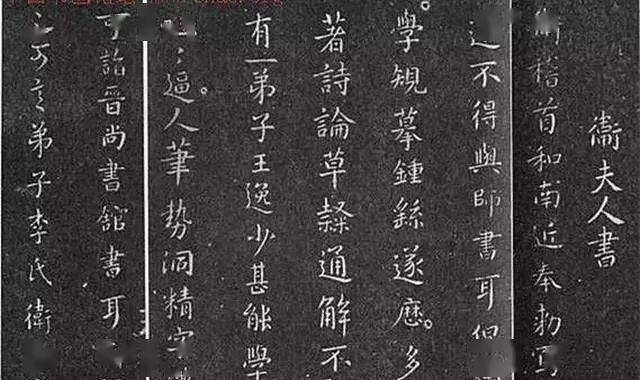 衞夫人書
稽首和南近奉勅寫
不得與師書耳但
學規摹鍾繇遂歷。多
著詩論草隸通解不
有一弟子王逸少甚能學
逼。人筆勢洞精字
可詣晉尚書館書耳
可言弟子李氏衛